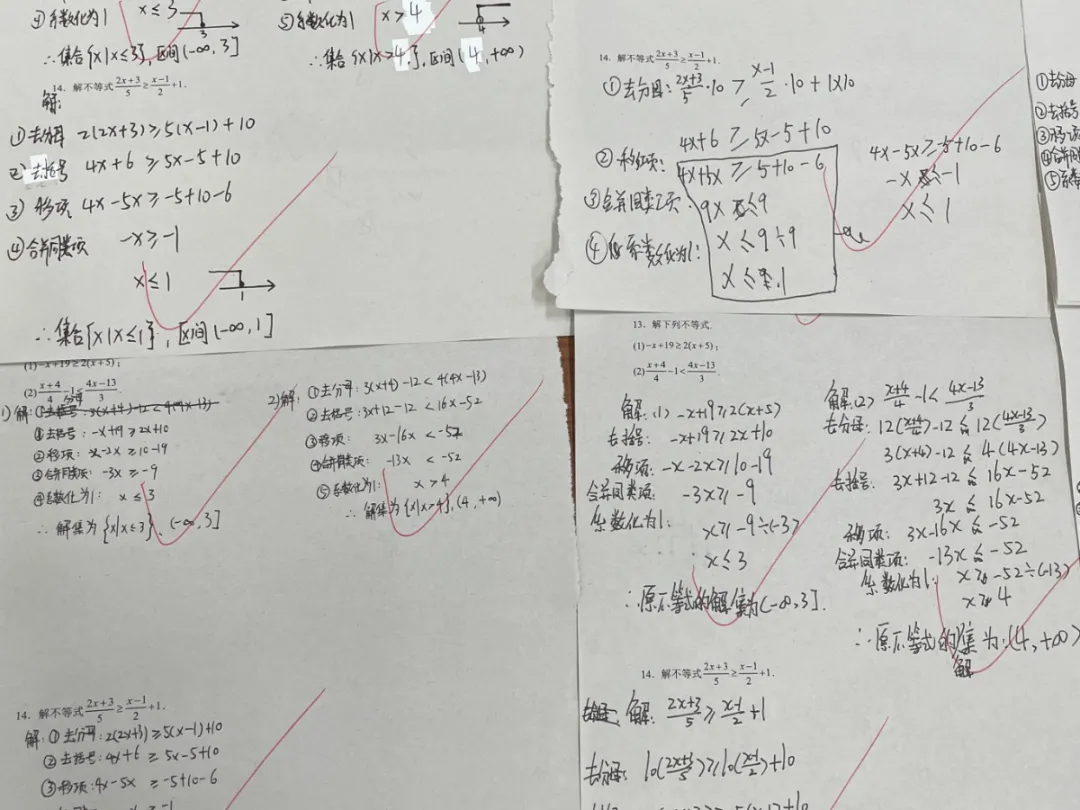 ④系数化为1 x≤3
3
∴集合{x|x≤3},区间(-∞,3]
14. 解不等式 (2x+3)/5 ≥ (x-1)/2 +1.
解:
①去分母 2(2x+3)≥5(x-1)+10
②去括号 4x+6 ≥ 5x-5+10
③ 移项 4x-5x≥-5+10-6
④合并同类项 -x≥-1
x≤1
1
∴集合{x|x≤1},区间(-∞,1]
⑤系数化为1 x>4
4
∴集合{x|x>4},区间(4,+∞)
14. 解不等式 (2x+3)/5 ≥ (x-1)/2 +1.
①去分母: (2x+3)/5 ·10 ≥ (x-1)/2 ·10 + 1×10
4x+6 ≥ 5x-5+10
②移项: 4x+5x ≥ 5+10-6
③合并同类项: 9x ≤9
④系数化为1: x ≤9÷9
x ≤ 1
4x-5x≥-5+10-6
-x ≤-1
x≤ 1
①去分母
②去括号
③移项
④合并同
⑤系数
(1)-x+19≥2(x+5);
(2) (x+4)/4 -1< (4x-13)/3.
1)解:①去括号:3(x+4)-12<4(4x-13)
①去括号: -x+19 ≥ 2x+10
②移项: -x-2x ≥ 10-19
③合并同类项: -3x≥ -9
④系数化为1: x ≤ 3
∴ 解集为{x|x≤3}、(-∞,3]
2)解:①去分母:3(x+4)-12<4(4x-13)
②去括号:3x+12-12 <16x-52
③移项: 3x-16x <-52
④合并同类项: -13x < -52
⑤系数化为1: x>4
∴ 解集为{x|x>4},(4,+∞)
14. 解不等式 (2x+3)/5 ≥ (x-1)/2 +1.
解:①去分母:2(2x+3)≥5(x-1)+10
②去括号:4x+6 ≥ 5x-5+10
③移项:4x-5x ≥-5+10-6
13. 解下列不等式.
(1)-x+19≥2(x+5);
(2) (x+4)/4 -1< (4x-13)/3.
解:(1) -x+19≥2(x+5)
去括号: -x+19≥2x+10
移项:-x-2x≥10-19
合并同类项: -3x≥-9
系数化为1: x≥-9÷(-3)
x≤3
∴原不等式的解集为(-∞,3].
解:(2) (x+4)/4 -1< (4x-13)/3
去分母: 12((x+4)/4)-12≤12((4x-13)/3)
3(x+4)-12≤ 4(4x-13)
去括号: 3x+12-12 ≤ 16x-52
3x ≤ 16x-52
移项: 3x-16x ≤-52
合并同类项: -13x≤-52
系数为1: x≥-52÷(-13)
x≥ 4
∴原不等式的解集为:(4,+∞)
14. 解不等式 (2x+3)/5 ≥ (x-1)/2 +1.
解: (2x+3)/5 ≥ (x-1)/2 +1
去分母: 10((2x+3)/5)≥10((x-1)/2)+10